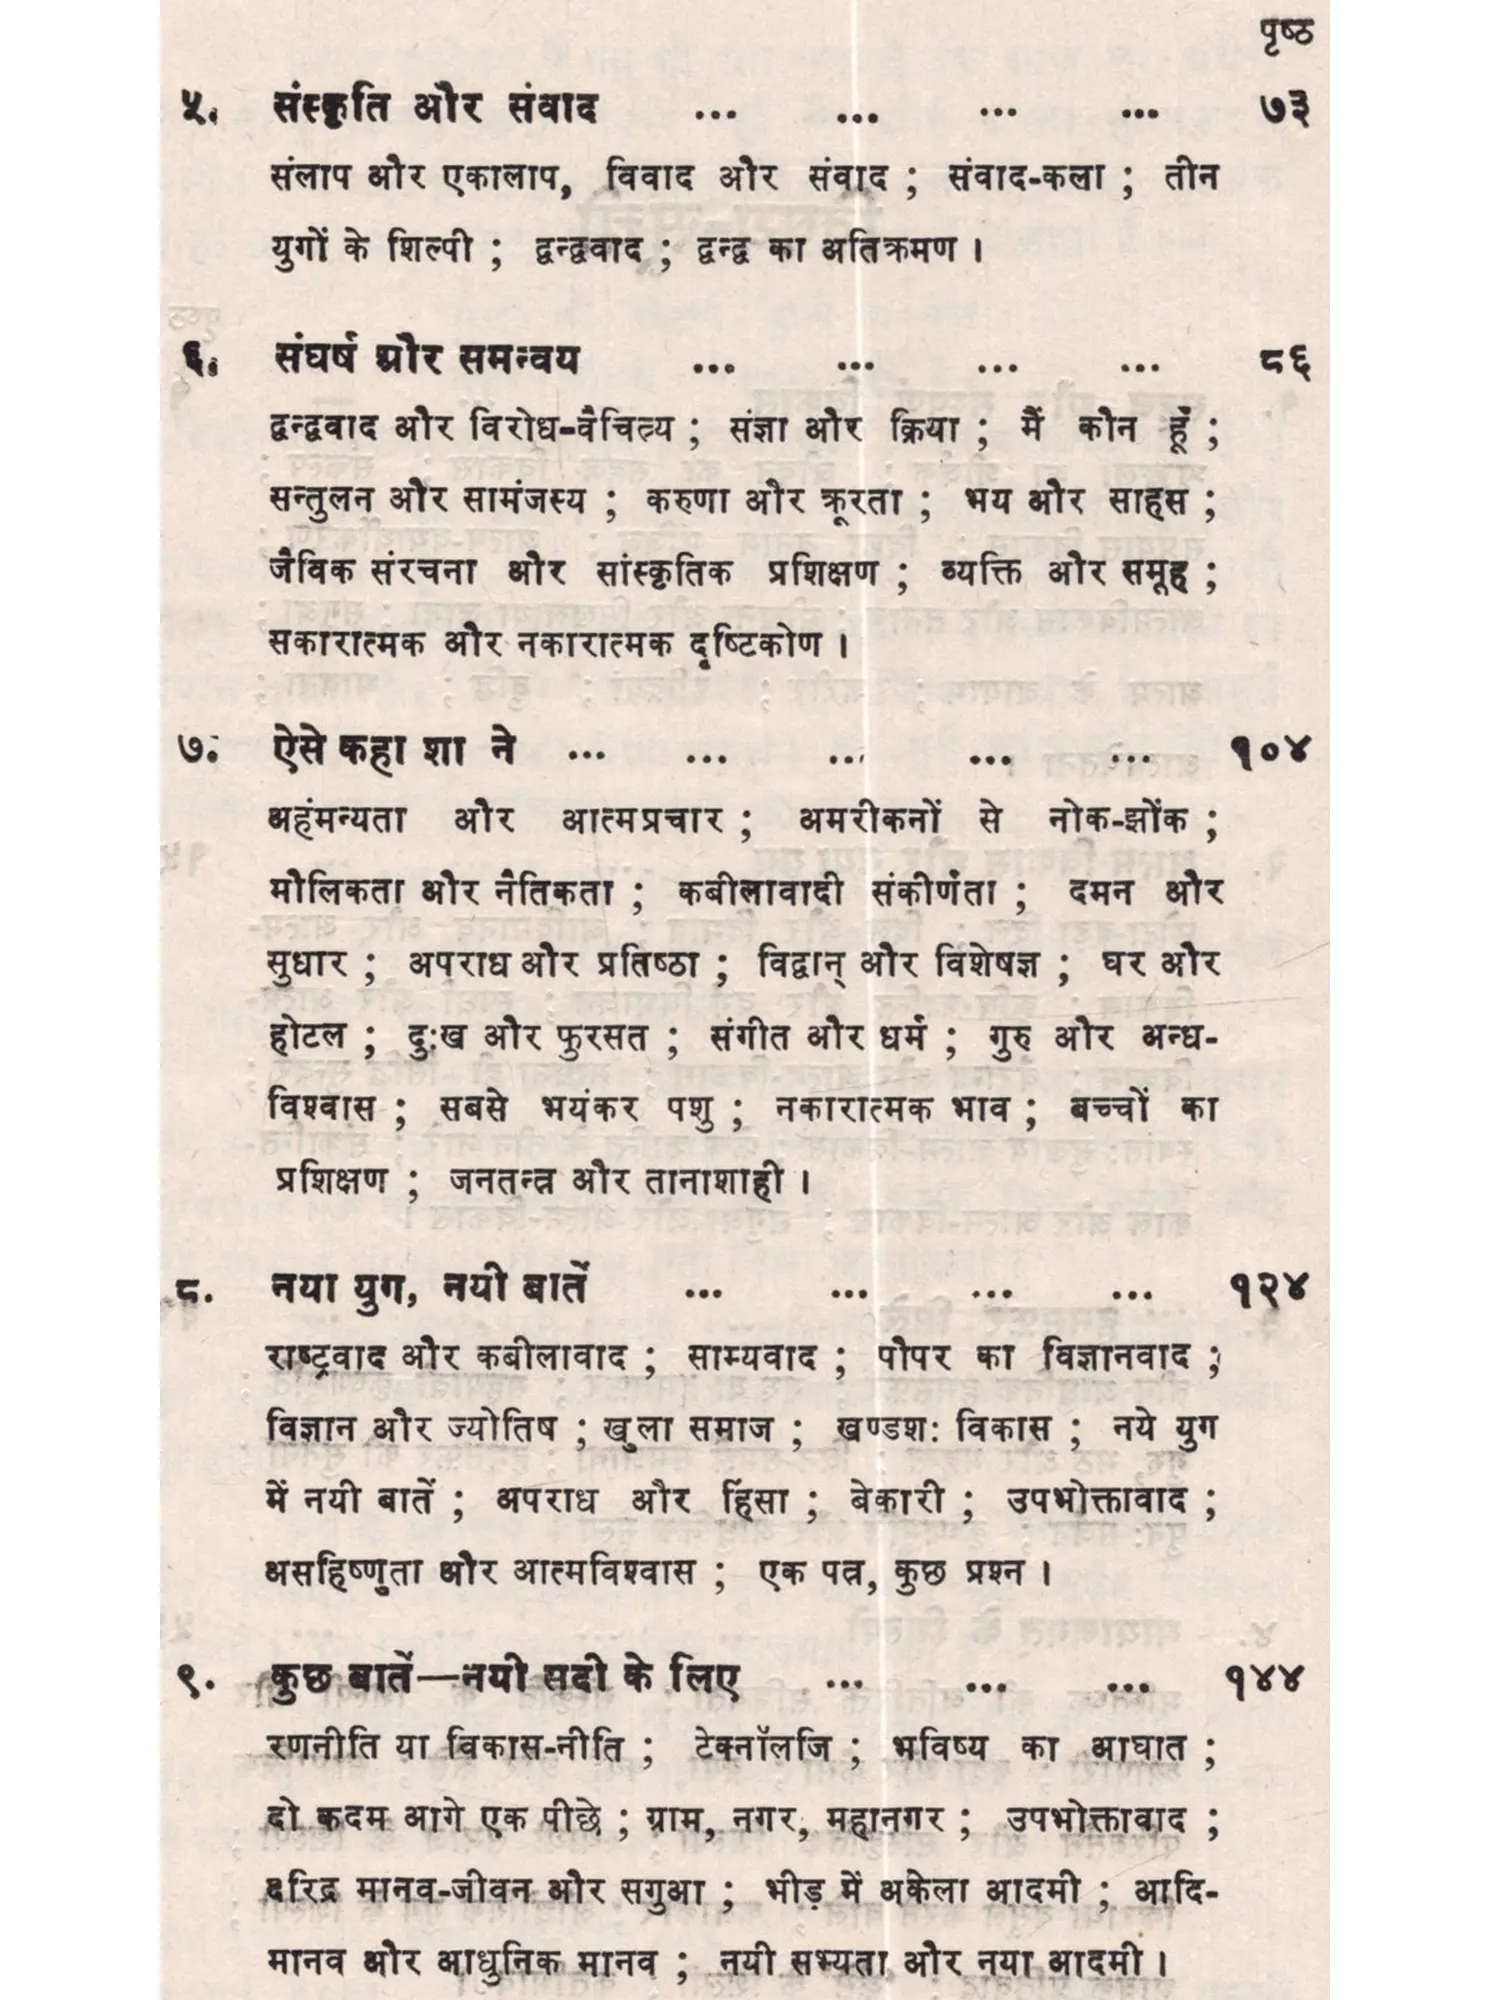 पृष्ठ
५. संस्कृति और संवाद ... ... ... ... ७३
संलाप और एकालाप, विवाद और संवाद ; संवाद-कला ; तीन
युगों के शिल्पी ; द्वन्द्ववाद ; द्वन्द्व का अतिक्रमण ।
६. संघर्ष और समन्वय ... ... ... ... ८६
द्वन्द्ववाद और विरोध-वैचित्र्य ; संज्ञा और क्रिया ; मैं कौन हूँ ;
सन्तुलन और सामंजस्य ; करुणा और क्रूरता ; भय और साहस ;
जैविक संरचना और सांस्कृतिक प्रशिक्षण ; व्यक्ति और समूह ;
सकारात्मक और नकारात्मक दृष्टिकोण ।
७. ऐसे कहा शा ने ... ... ... ... ... १०४
अहंमन्यता और आत्मप्रचार ; अमरीकनों से नोक-झोंक ;
मौलिकता और नैतिकता ; कबीलावादी संकीर्णता ; दमन और
सुधार ; अपराध और प्रतिष्ठा ; विद्वान् और विशेषज्ञ ; घर और
होटल ; दुःख और फुरसत ; संगीत और धर्म ; गुरु और अन्ध-
विश्वास ; सबसे भयंकर पशु ; नकारात्मक भाव ; बच्चों का
प्रशिक्षण ; जनतन्त्र और तानाशाही ।
८. नया युग, नयी बातें ... ... ... ... १२४
राष्ट्रवाद और कबीलावाद ; साम्यवाद ; पोपर का विज्ञानवाद ;
विज्ञान और ज्योतिष ; खुला समाज ; खण्डशः विकास ; नये युग
में नयी बातें ; अपराध और हिंसा ; बेकारी ; उपभोक्तावाद ;
असहिष्णुता और आत्मविश्वास ; एक पत्र, कुछ प्रश्न ।
९. कुछ बातें—नयी सदी के लिए ... ... ... १४४
रणनीति या विकास-नीति ; टेक्नॉलजि ; भविष्य का आघात ;
दो कदम आगे एक पीछे ; ग्राम, नगर, महानगर ; उपभोक्तावाद ;
दरिद्र मानव-जीवन और सगुआ ; भीड़ में अकेला आदमी ; आदि-
मानव और आधुनिक मानव ; नयी सभ्यता और नया आदमी ।